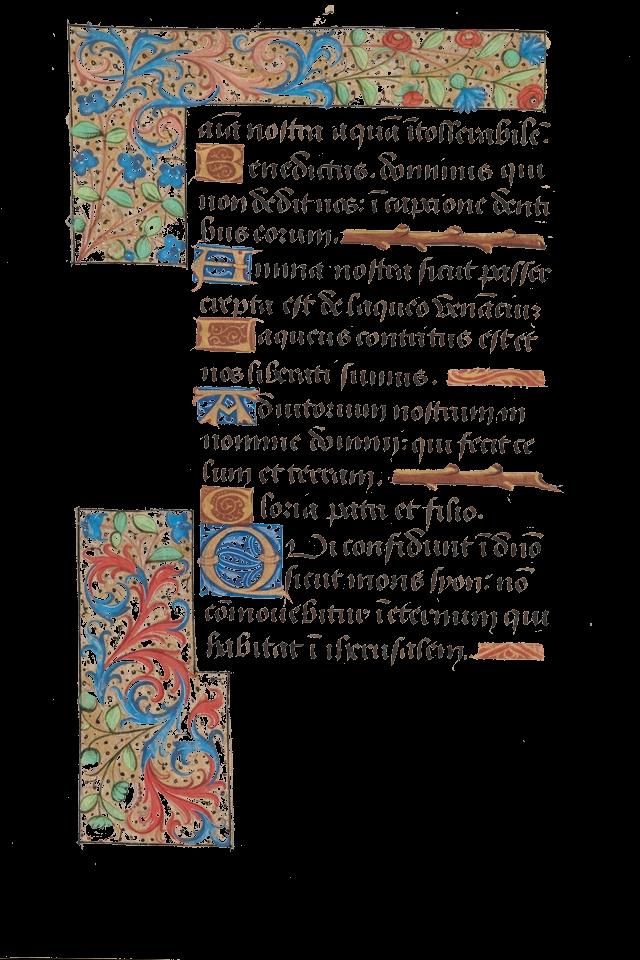 aīa nostra aquā ītollerabilē.
Benedictus dominus qui
non dedit nos: ī capcione denti
bus eorum.
Anima nostra sicut passer
erepta est de laqueo venāciuȝ
Laqueus contritus est et
nos liberati sumus.
Adiutorium nostrum in
nomine dominj: qui fecit ce
lum et terram.
Gloria patri et filio.
Qui confidunt ī dn̄o
sicut mons syon: nō
cōmouebitur ī eternum qui
habitat ī iherusalem.